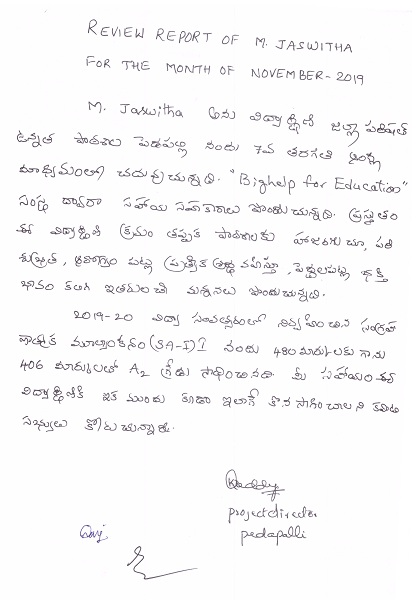 REVIEW REPORT OF M. JASWITHA
FOR THE MONTH OF NOVEMBER-2019
M. Jaswitha అను విద్యార్థిణి జిల్లా పరిషత్
ఉన్నత పాఠశాల పెదపల్లి నందు 7వ తరగతి ఇంగ్లీషు
మాధ్యమంలో చదువుచున్నది. "Bighelp for Education"
సంస్థ ద్వారా సహాయ సహకారాలు పొందుచున్నది. ప్రస్తుతం
ఈ విద్యార్థిణి క్రమం తప్పక పాఠశాలకు హాజరగుచూ, పరి
శుభ్రత, ఆరోగ్యం పట్ల ప్రత్యేక శ్రద్ధ వహిస్తూ, పెద్దలపట్ల భక్తి
భావం కలిగి ఇతరులచే మన్ననలు పొందుచున్నది.
2019-20 విద్యా సంవత్సరంలో నిర్వహించిన సంగ్రహ
ణాత్మక మూల్యాంకనం (SA-I) నందు 480 మార్కులకు గాను
406 మార్కులతో A2 గ్రేడు సాధించినది. మీ సహాయం ఈ
విద్యార్థిణికి ఇక ముందు కూడా ఇలాగే కొనసాగించాలని కమిటి
సభ్యులు కోరుచున్నారు.
project director
pedapalli